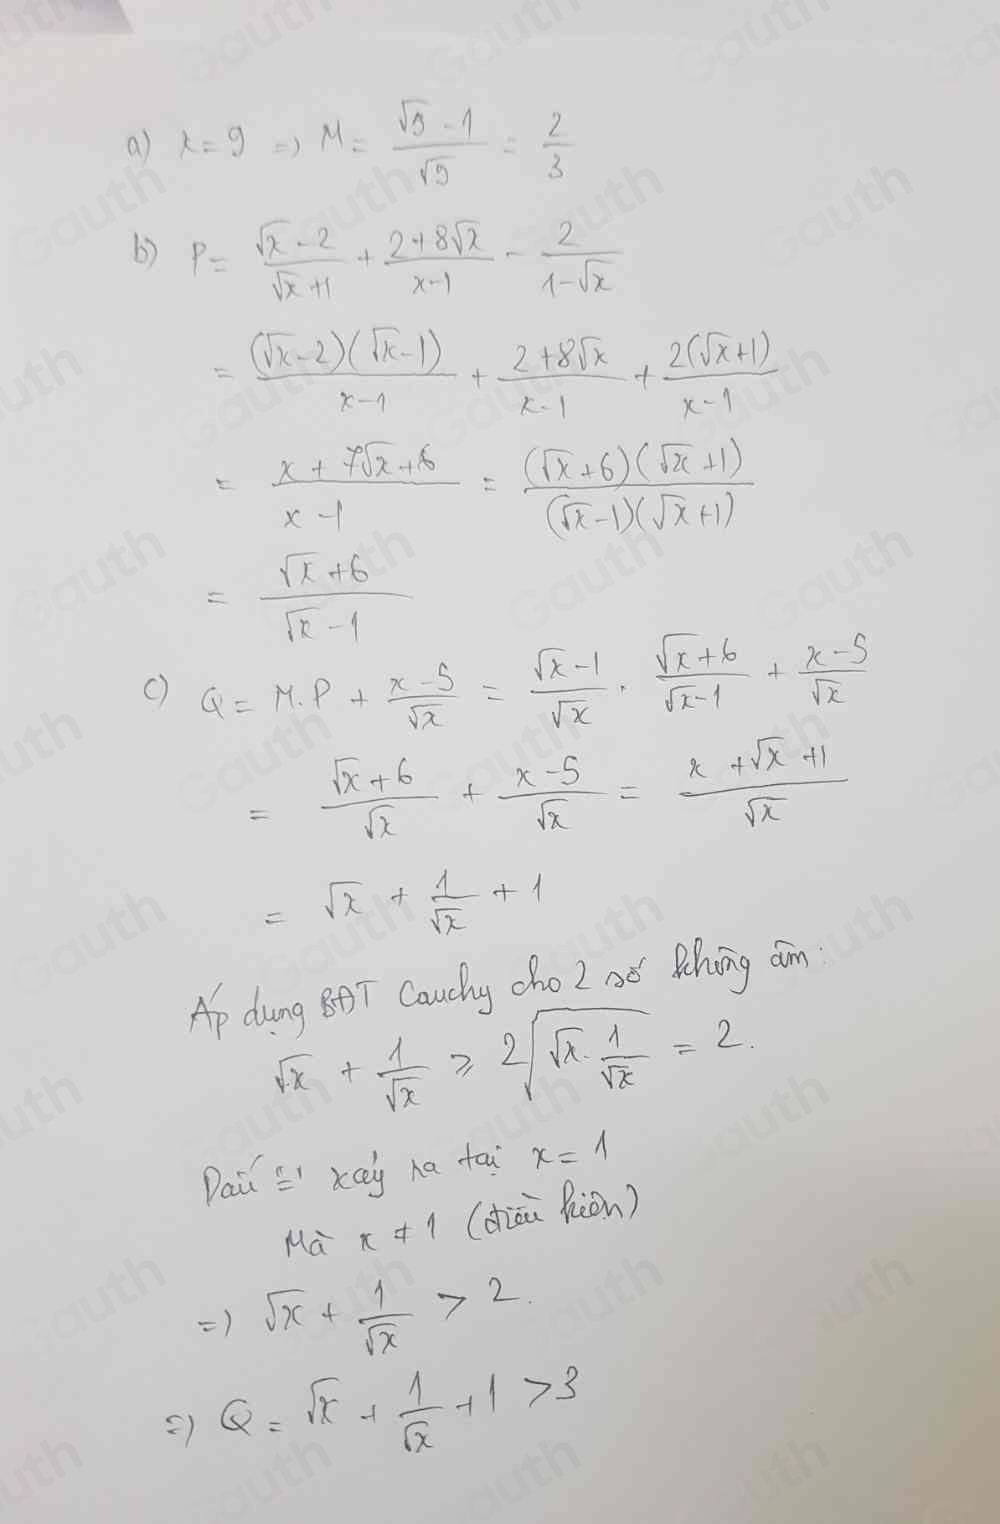 a) x = 9 => M = (√9 - 1)/√9 = 2/3
b) P = (√x - 2)/(√x + 1) + (2 + 8√x)/(x - 1) - 2/(1 - √x)
= (√x - 2)(√x - 1)/(x - 1) + (2 + 8√x)/(x - 1) + 2(√x + 1)/(x - 1)
= (x + 7√x + 6)/(x - 1) = (√x + 6)(√x + 1)/((√x - 1)(√x + 1))
= (√x + 6)/(√x - 1)
c) Q = M.P + (x - 5)/√x = (√x - 1)/√x . (√x + 6)/(√x - 1) + (x - 5)/√x
= (√x + 6)/√x + (x - 5)/√x = (x + √x + 1)/√x
= √x + 1/√x + 1
Áp dụng BĐT Cauchy cho 2 số không âm:
√x + 1/√x ≥ 2√(√x . 1/√x) = 2.
Dấu "=" xảy ra tại x = 1
Mà x ≠ 1 (điều kiện)
=> √x + 1/√x > 2.
=> Q = √x + 1/√x + 1 > 3